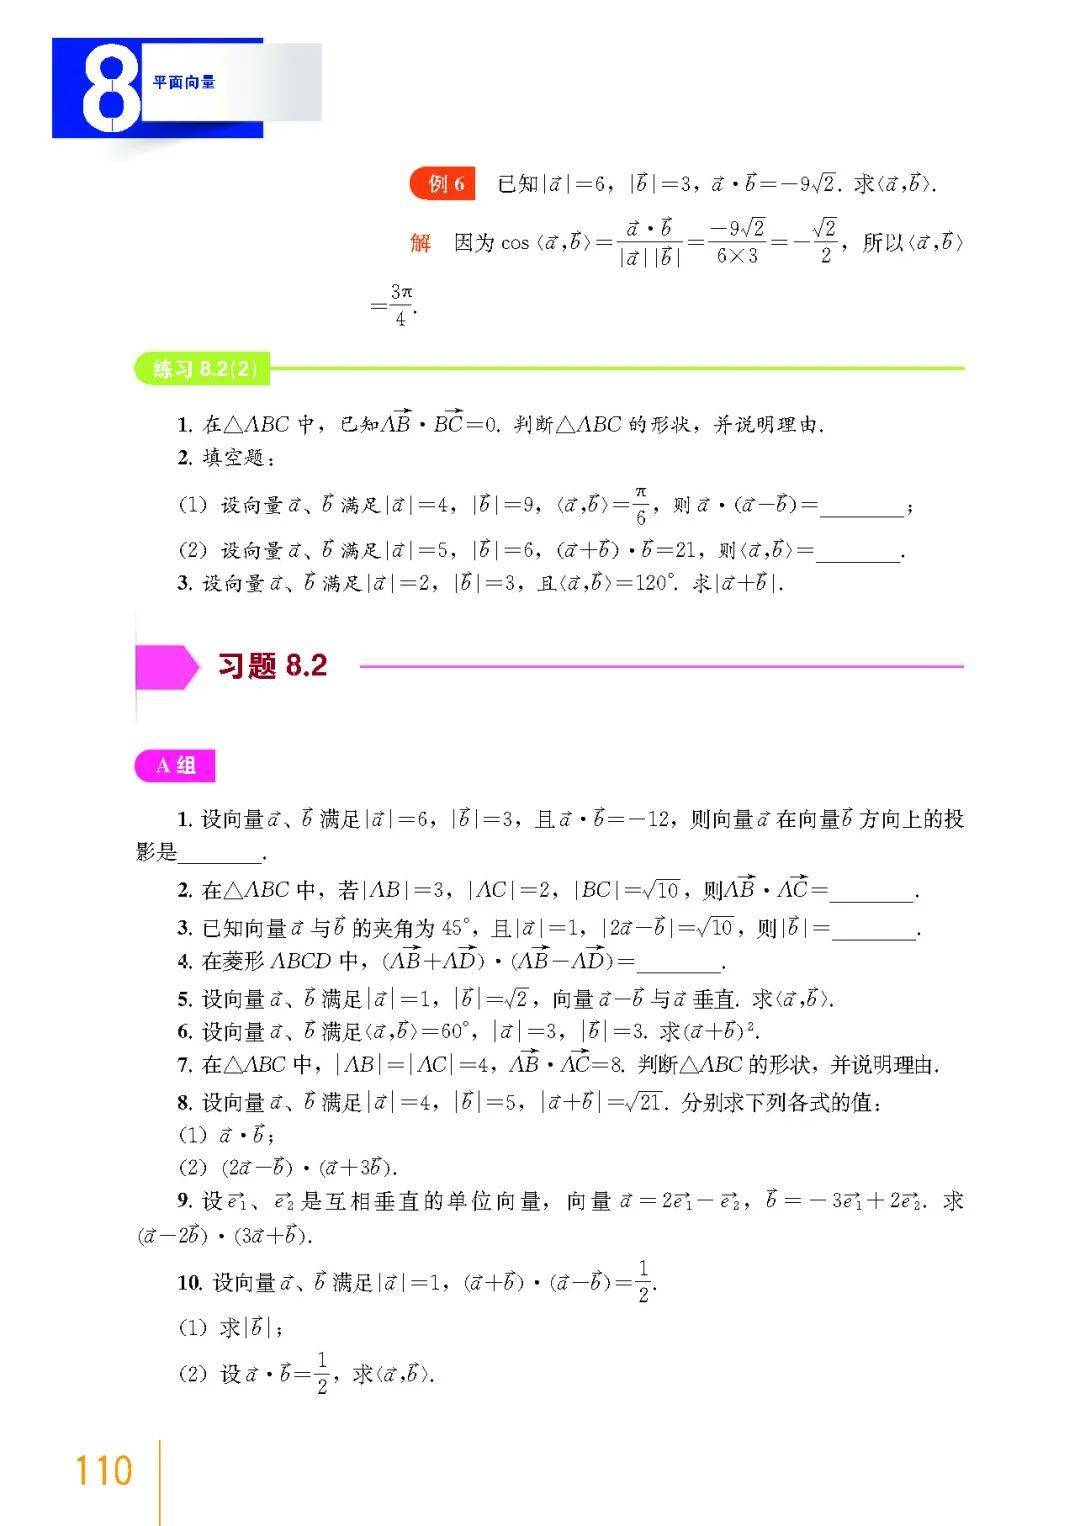 8
平面向量
例 6 已知|a⃗|=6，|b⃗|=3，a⃗·b⃗=−9√2. 求⟨a⃗,b⃗⟩.
解 因为 cos⟨a⃗,b⃗⟩=a⃗·b⃗/(|a⃗||b⃗|)=−9√2/(6×3)=−√2/2，所以⟨a⃗,b⃗⟩
=3π/4.
练习 8.2(2)
1. 在△ABC 中，已知AB⃗·BC⃗=0. 判断△ABC 的形状，并说明理由.
2. 填空题：
(1) 设向量a⃗、b⃗ 满足|a⃗|=4，|b⃗|=9，⟨a⃗,b⃗⟩=π/6，则a⃗·(a⃗−b⃗)=________；
(2) 设向量a⃗、b⃗ 满足|a⃗|=5，|b⃗|=6，(a⃗+b⃗)·b⃗=21，则⟨a⃗,b⃗⟩=________.
3. 设向量a⃗、b⃗ 满足|a⃗|=2，|b⃗|=3，且⟨a⃗,b⃗⟩=120°. 求|a⃗+b⃗|.
习题 8.2
A 组
1. 设向量a⃗、b⃗ 满足|a⃗|=6，|b⃗|=3，且a⃗·b⃗=−12，则向量a⃗ 在向量b⃗ 方向上的投
影是________.
2. 在△ABC 中，若|AB|=3，|AC|=2，|BC|=√10，则AB⃗·AC⃗=________.
3. 已知向量a⃗ 与b⃗ 的夹角为 45°，且|a⃗|=1，|2a⃗−b⃗|=√10，则|b⃗|=________.
4. 在菱形 ABCD 中，(AB⃗+AD⃗)·(AB⃗−AD⃗)=________.
5. 设向量a⃗、b⃗ 满足|a⃗|=1，|b⃗|=√2，向量a⃗−b⃗ 与a⃗ 垂直. 求⟨a⃗,b⃗⟩.
6. 设向量a⃗、b⃗ 满足⟨a⃗,b⃗⟩=60°，|a⃗|=3，|b⃗|=3. 求(a⃗+b⃗)².
7. 在△ABC 中，|AB|=|AC|=4，AB⃗·AC⃗=8. 判断△ABC 的形状，并说明理由.
8. 设向量a⃗、b⃗ 满足|a⃗|=4，|b⃗|=5，|a⃗+b⃗|=√21. 分别求下列各式的值：
(1) a⃗·b⃗；
(2) (2a⃗−b⃗)·(a⃗+3b⃗).
9. 设e⃗₁、e⃗₂ 是互相垂直的单位向量，向量 a⃗=2e⃗₁−e⃗₂，b⃗=−3e⃗₁+2e⃗₂. 求
(a⃗−2b⃗)·(3a⃗+b⃗).
10. 设向量a⃗、b⃗ 满足|a⃗|=1，(a⃗+b⃗)·(a⃗−b⃗)=1/2.
(1) 求|b⃗|；
(2) 设a⃗·b⃗=1/2，求⟨a⃗,b⃗⟩.
110